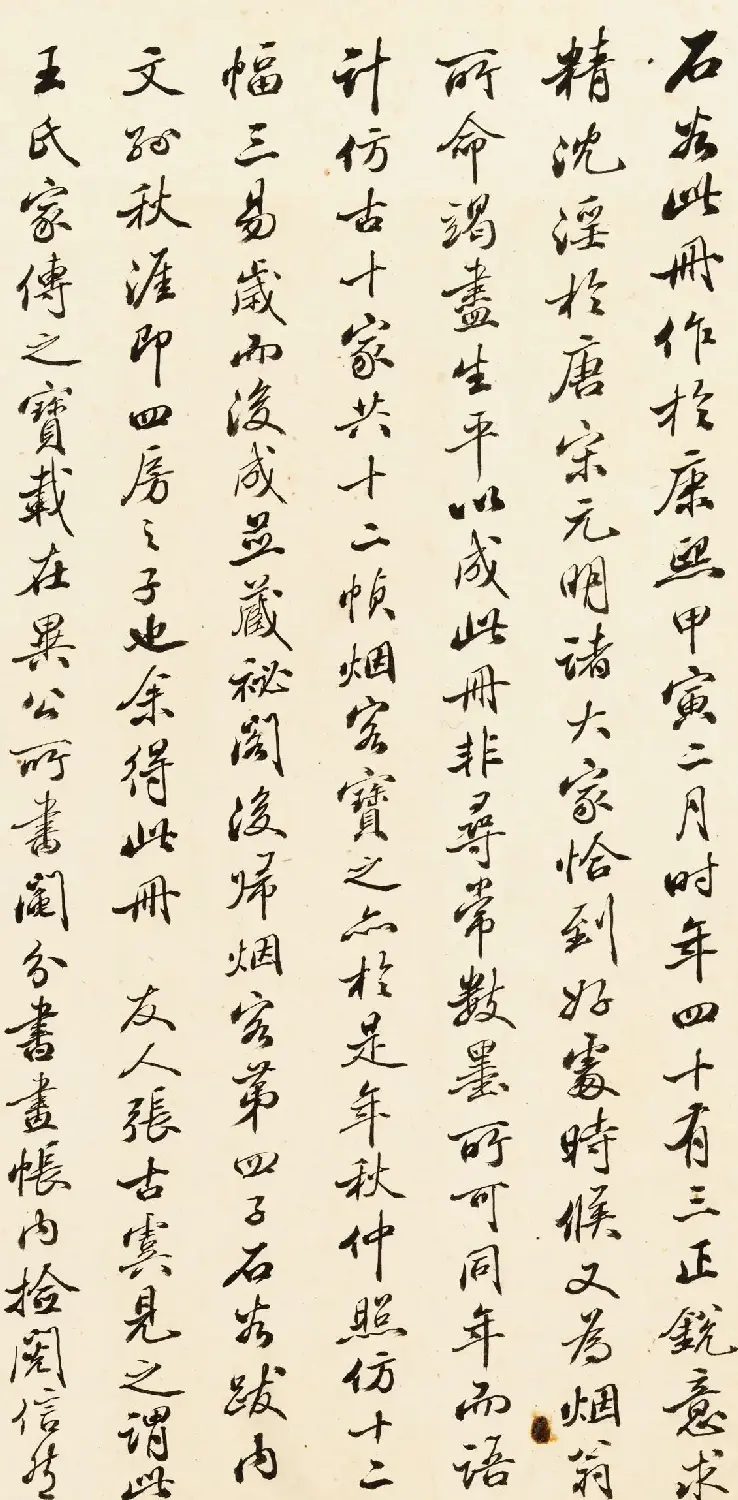 石谷此冊作於康熙甲寅二月时年四十有三正銳意求
精沈淫於唐宋元明諸大家恰到好處時候又為烟翁
所命竭盡生平以成此冊非尋常數墨所可同年而語
計仿古十家共十二幀烟客寶之亦於是年秋仲照仿十二
幅三易歲而後成並藏秘閣後歸烟客第四子石谷跋内
文孫秋涯即四房之子也余得此冊 友人張古虞見之謂此
王氏家傳之寶載在異公所書鬮分書畫帳内撿閱信